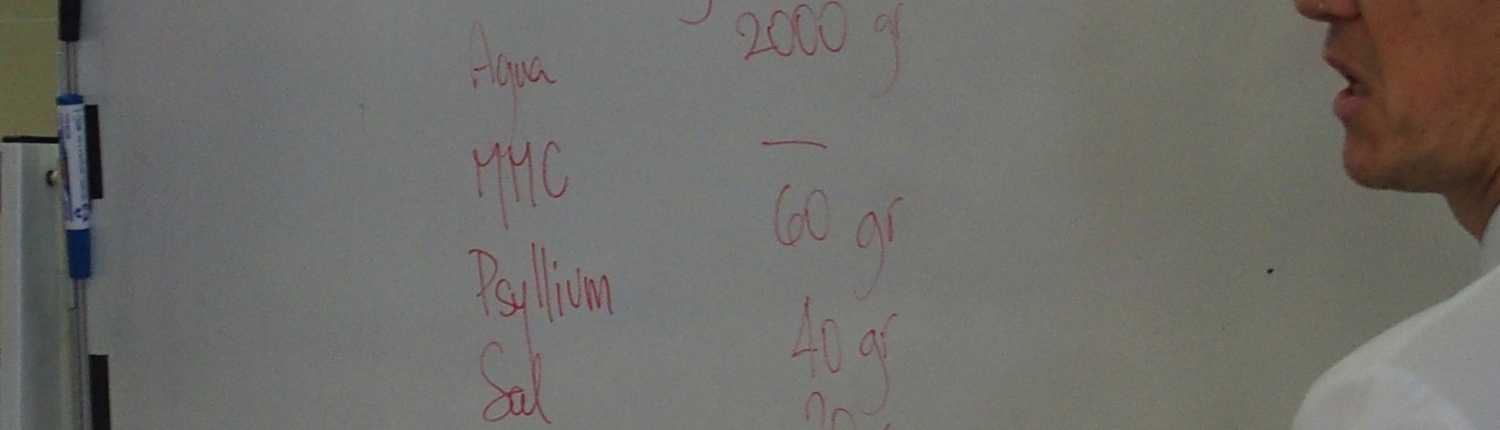 Agua 2000 gr
MMC —
Psyllium 60 gr
Sal 40 gr